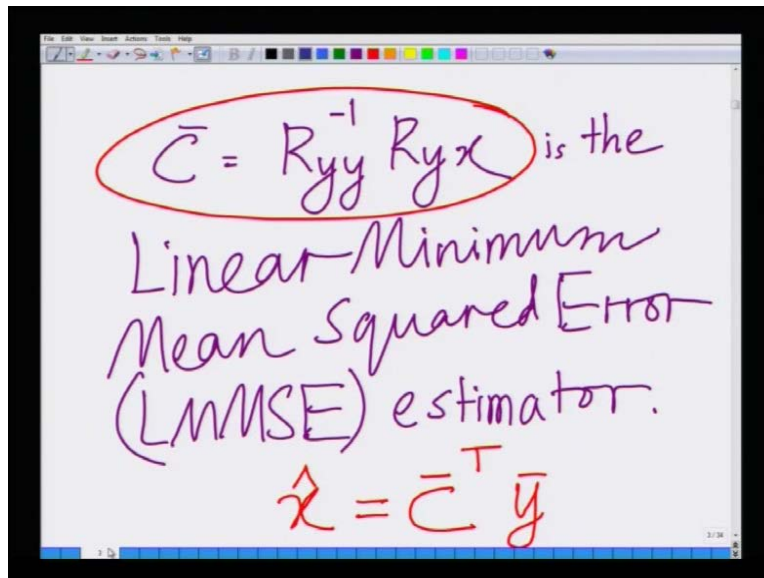 File Edit View Insert Actions Tools Help
C̄ = Ryy⁻¹ Ryx is the
Linear Minimum
Mean Squared Error
(LMMSE) estimator.
x̂ = c̄ᵀ ȳ